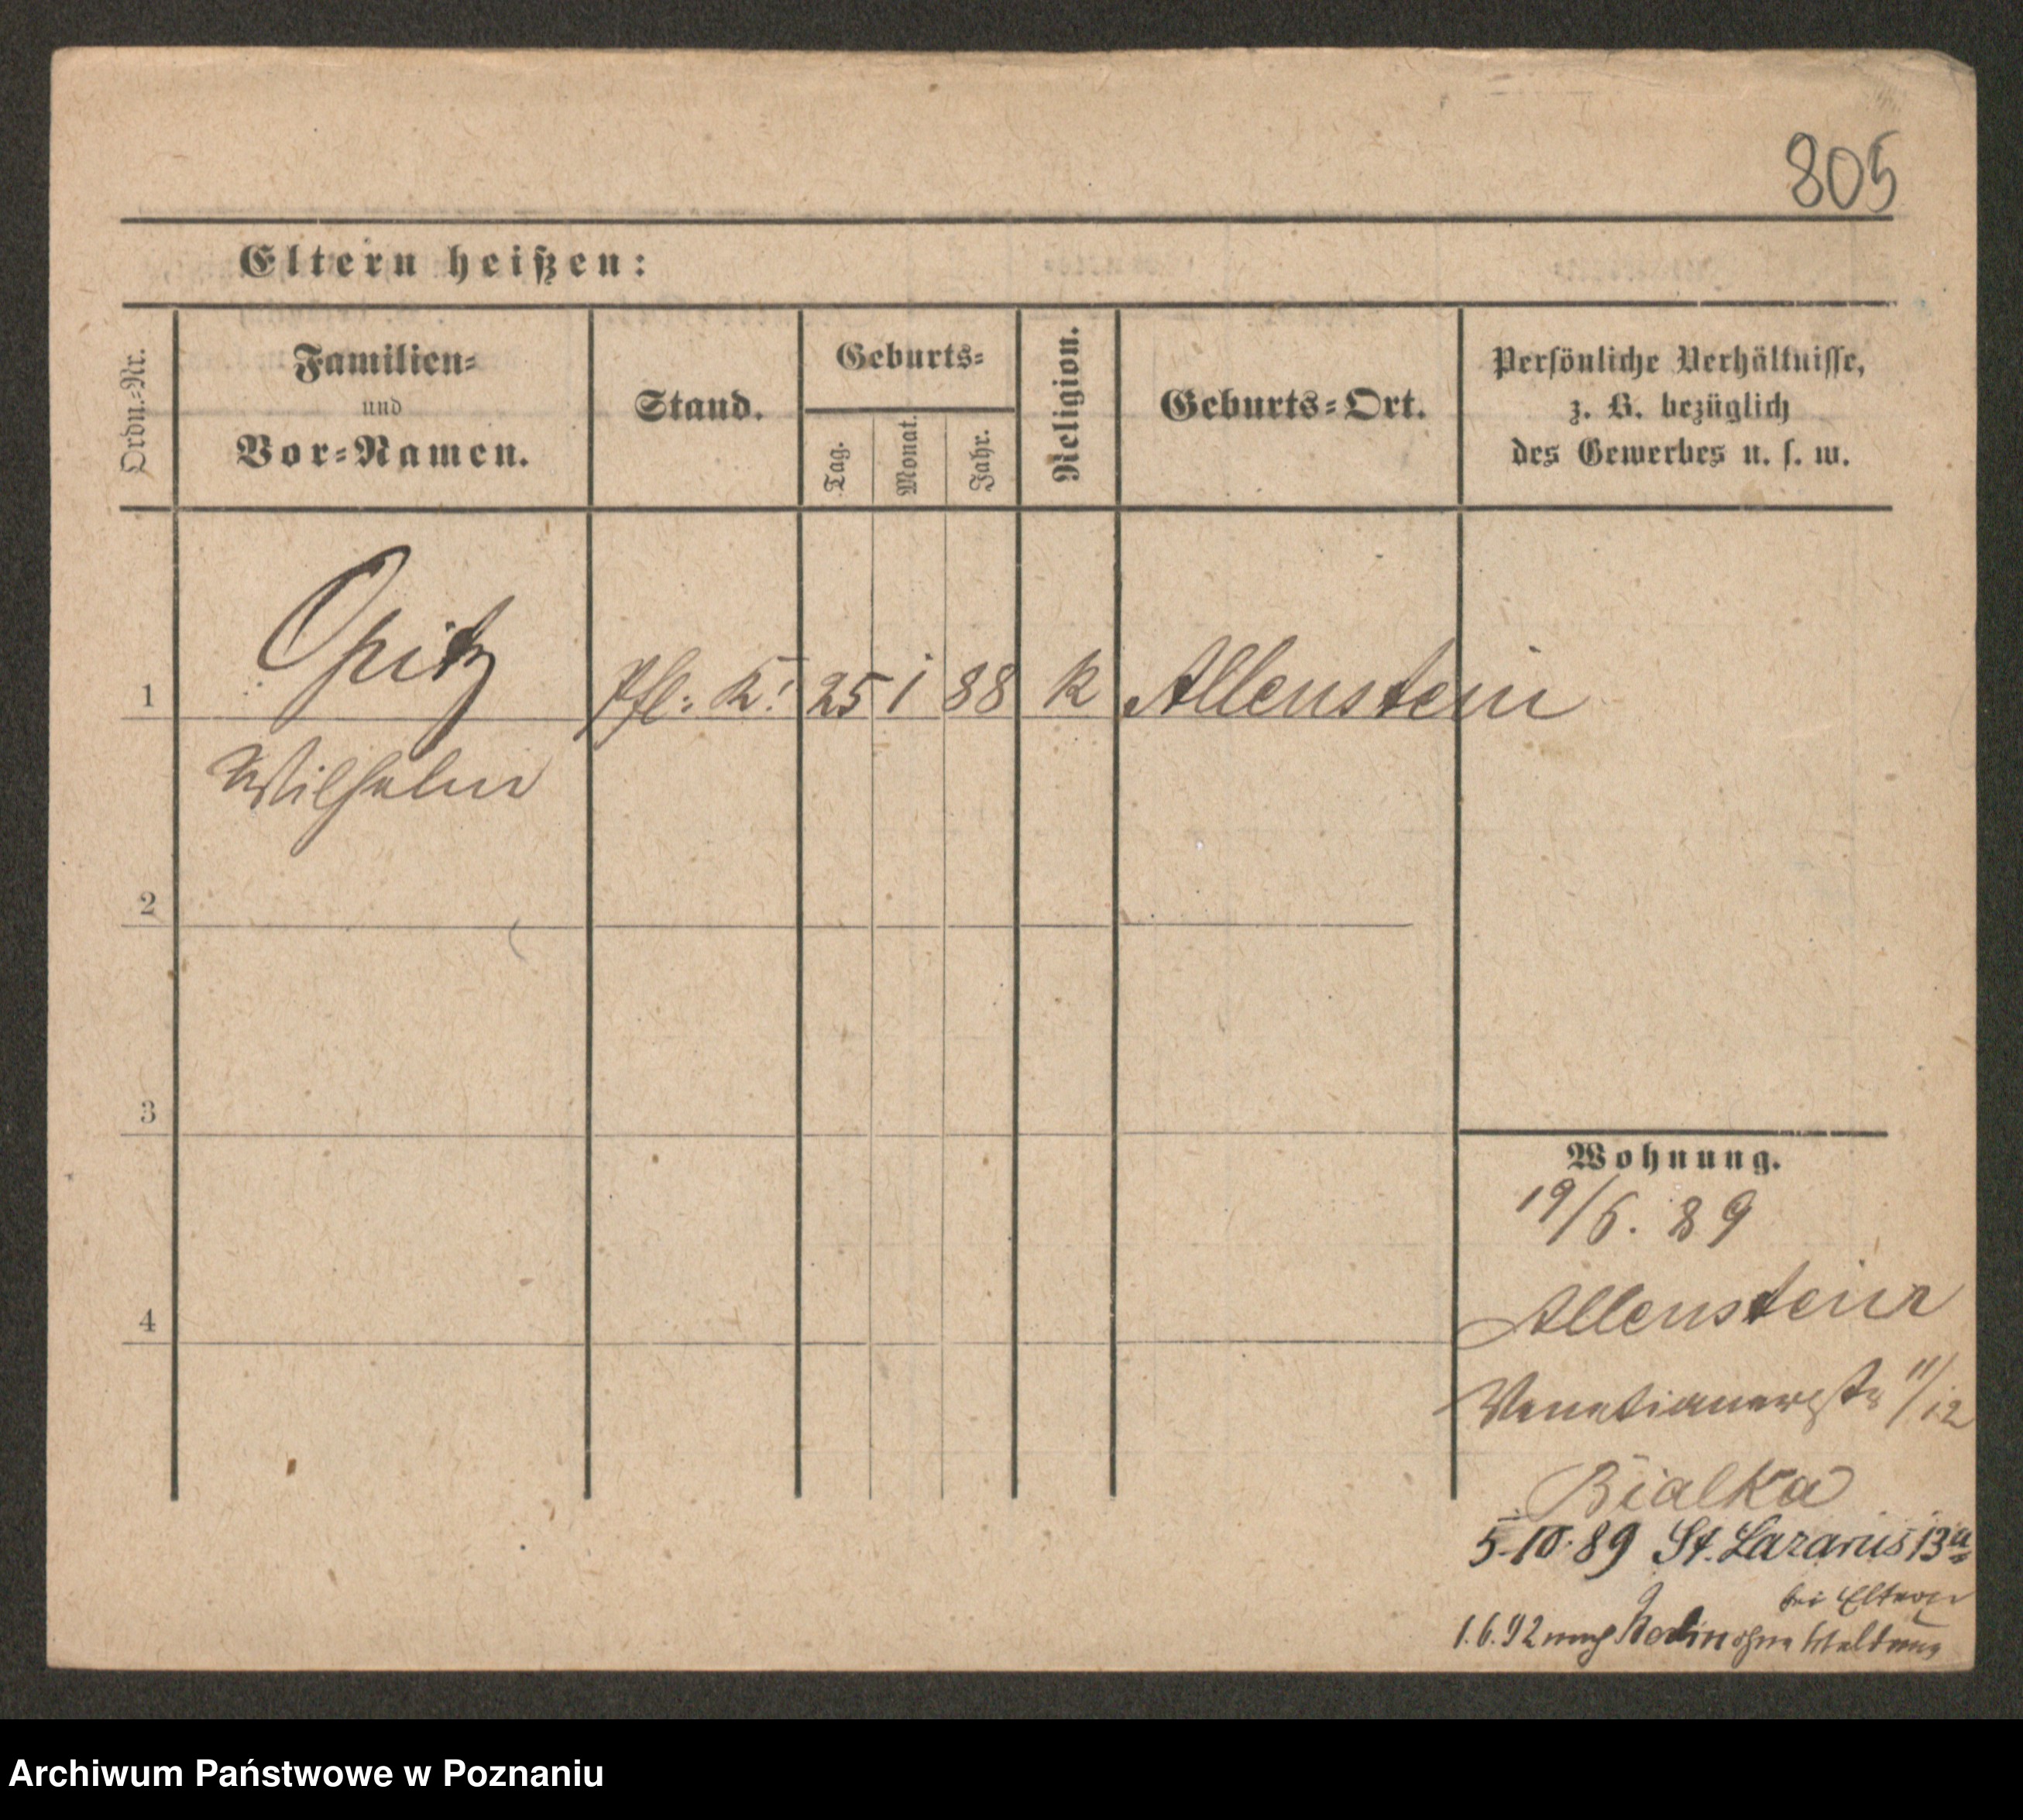 805
Eltern heißen:
Ordn.-Nr.
Familien-
und
Vor-Namen.
Stand.
Geburts-
Tag.
Monat.
Jahr.
Religion.
Geburts-Ort.
Persönliche Verhältnisse,
z. B. bezüglich
des Gewerbes u. s. w.
1 Opitz Pfl: K. 25 1 88 k Allenstein
Wilhelm
2
3
4
Wohnung.
19/6. 89
Allenstein
Venetianerstr 11/12
Bialka
5.10.89 St. Lazarus 13a
bei Eltern
1.6.92 nach Berlin ohne Meldung
Archiwum Państwowe w Poznaniu